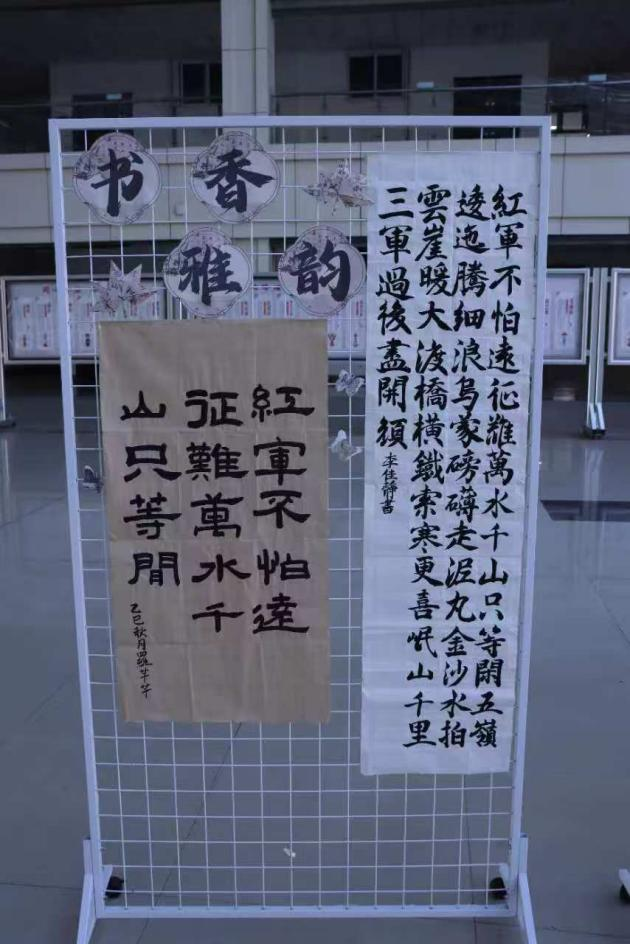 书香
雅韵
紅軍不怕遠
征難萬水千
山只等閒
乙巳秋月羅芊芊
紅軍不怕遠征難萬水千山只等閑五嶺
逶迤騰細浪烏蒙磅礴走泥丸金沙水拍
雲崖暖大渡橋橫鐵索寒更喜岷山千里
三軍過後盡開顏
李佳靜書